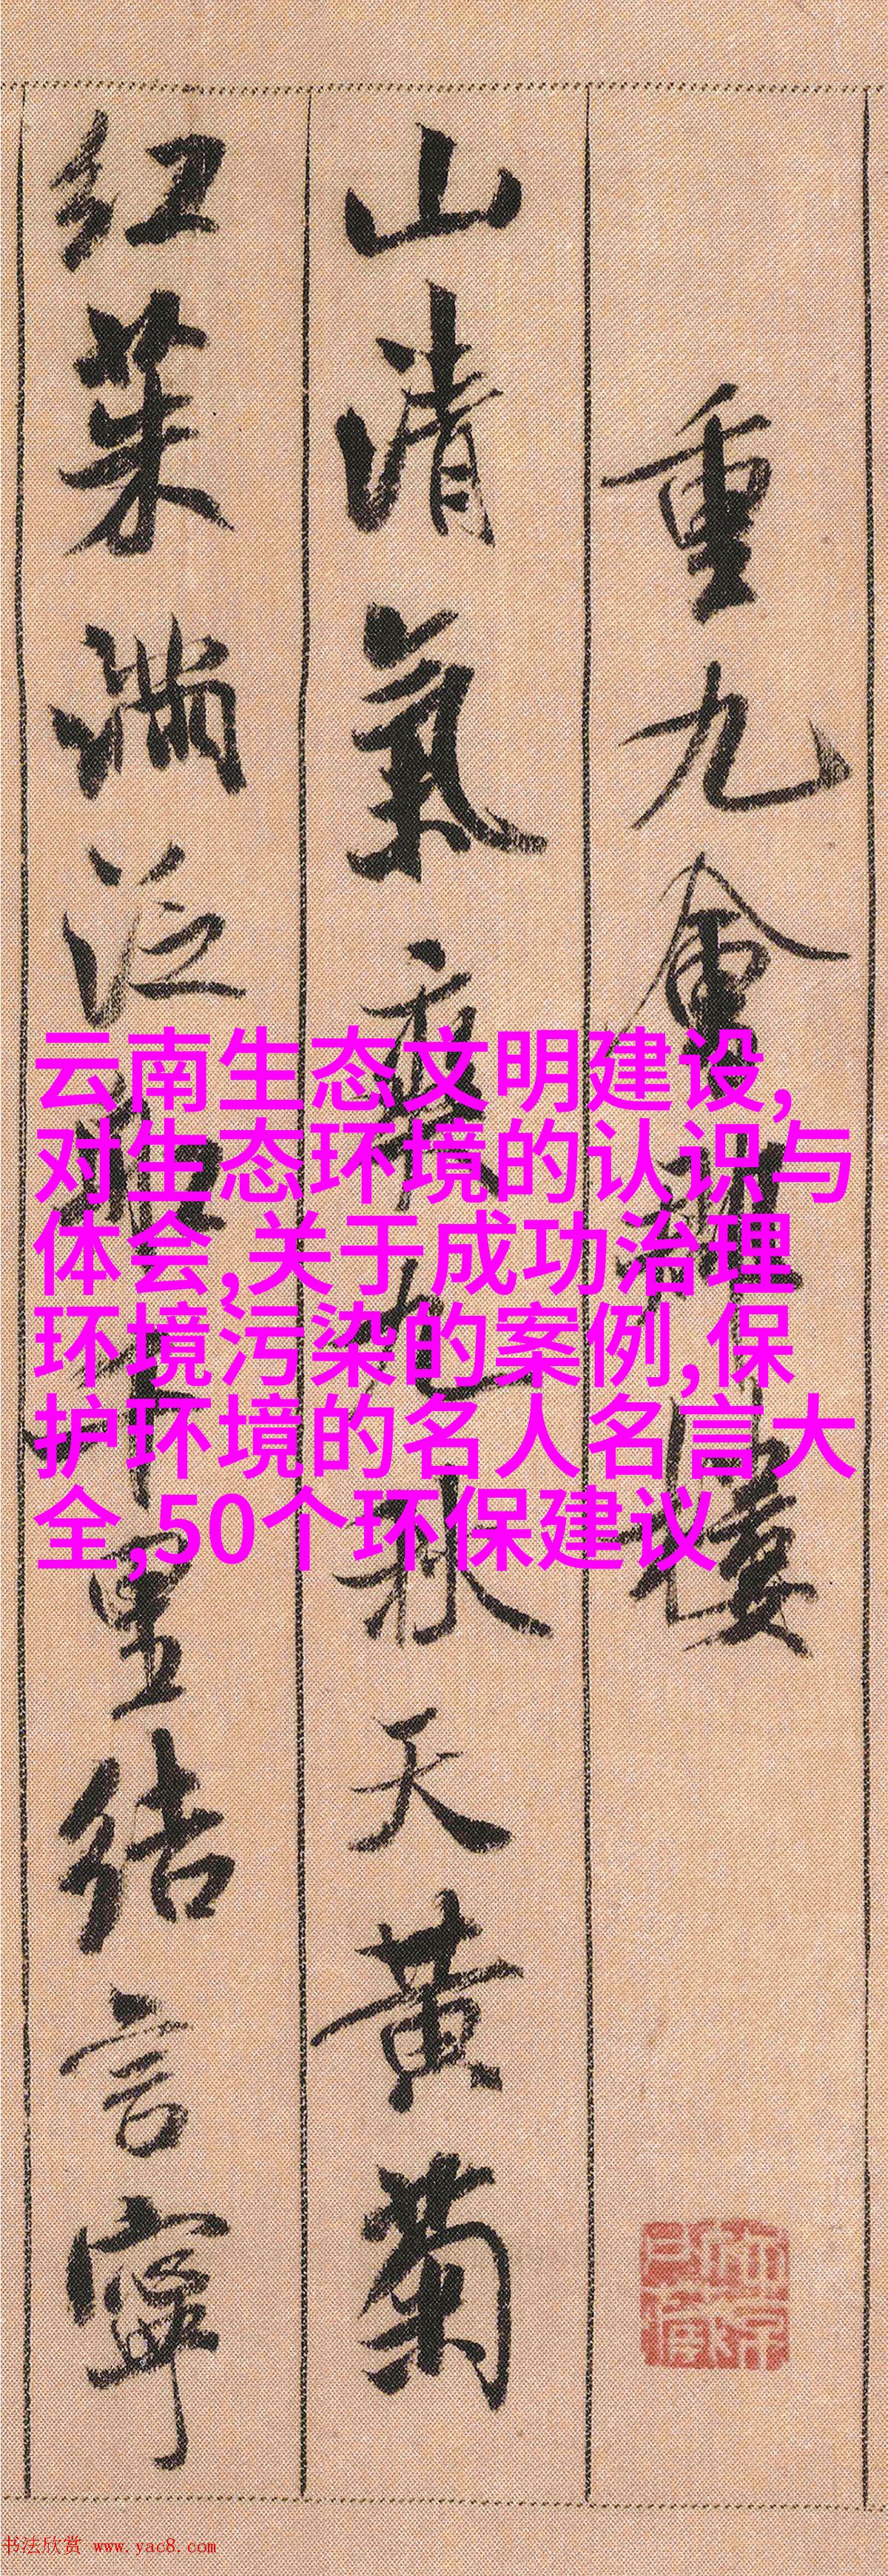 重九會郡樓
山清氣爽九秋天黃菊
紅茱滿泛船千里結言寧
云南生态文明建设,
对生态环境的认识与
体会,关于成功治理
环境污染的案例,保
护环境的名人名言大
全,50个环保建议
书法欣赏 www.yac8.com